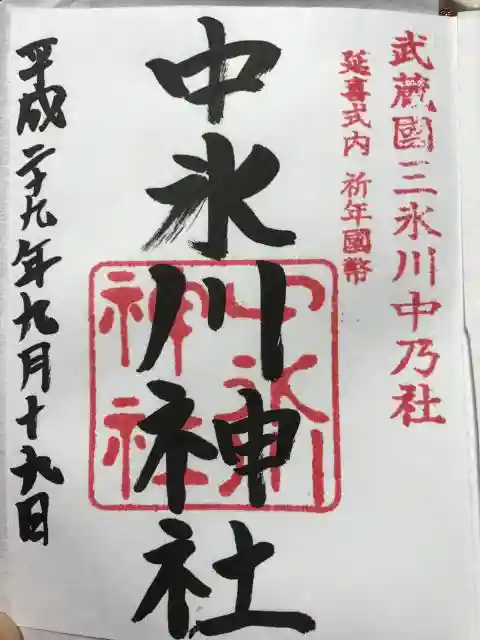 武蔵國三氷川中乃社
延喜式内 祈年國幣
中氷川神社
中氷川
神社
平成二十九年九月十九日